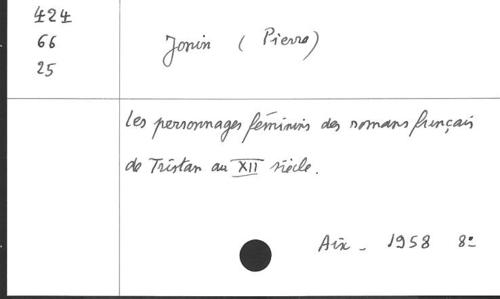 424
66
25
Jonin ( Pierre)
Les personnages féminins des romans français
de Tristan au XII siècle.
Aix - 1958 8º